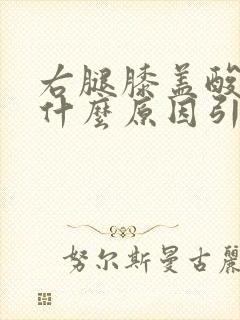 右腿膝盖酸
什麼原因引
努尔斯曼古麗